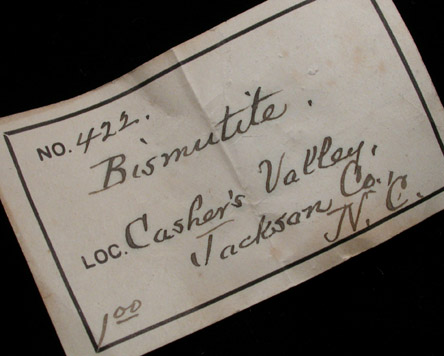 NO. 422.
Bismutite.
LOC. Casher's Valley,
Jackson Co.,
N. C.
1.00